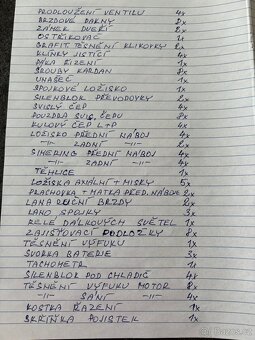 PRODLOUŽENÍ VENTILU 4x
BRZDOVÉ DARNY 2x
ZÁMEK DVEŘÍ 2x
OSTŘIKOVAČ 1x
GRAFIT. TĚSNĚNÍ KLIKOVKY 2x
KLÍNKY JISTÍCÍ 4x
PÁKA ŘÍZENÍ 1x
ŠROUBY KARDAN 8x
UNAŠEČ 1x
SPOJKOVÉ LOŽISKO 1x
SILENBLOK PŘEVODOVKY 2x
SVISLÝ ČEP 4x
POUZDRA SVIS. ČEPU 8x
KULOVÝ ČEP L+P 4x
LOŽISKO PŘEDNÍ NÁBOJ 4x
-||- ZADNÍ -||- 2x
SIMERING PŘEDNÍ NÁBOJ 4x
-||- ZADNÍ -||- 4x
TĚHLICE 1x
LOŽISKA ANÁLNÍ + MISKY 5x
PLACHOVKA + MATKA PŘED. NÁBOJE 2x
LANA RUČNÍ BRZDY 2x
LANO SPOJKY 3x
RELÉ DÁLKOVÝCH SVĚTEL 1x
ZAJIŠŤOVACÍ PODLOŽKY 8x
TĚSNĚNÍ VÝFUKU 1x
SVORKA BATERIE 3x
TACHOMETR 1x
SILENBLOK POD CHLADIČ 4x
TĚSNĚNÍ VÝFUKU MOTOR 8x
-||- SÁNÍ -||- 4x
KOSTKA ŘAZENÍ 1x
SKŘÍŇKA POJISTEK 1x